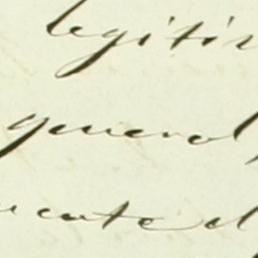 legitir
general,
cated